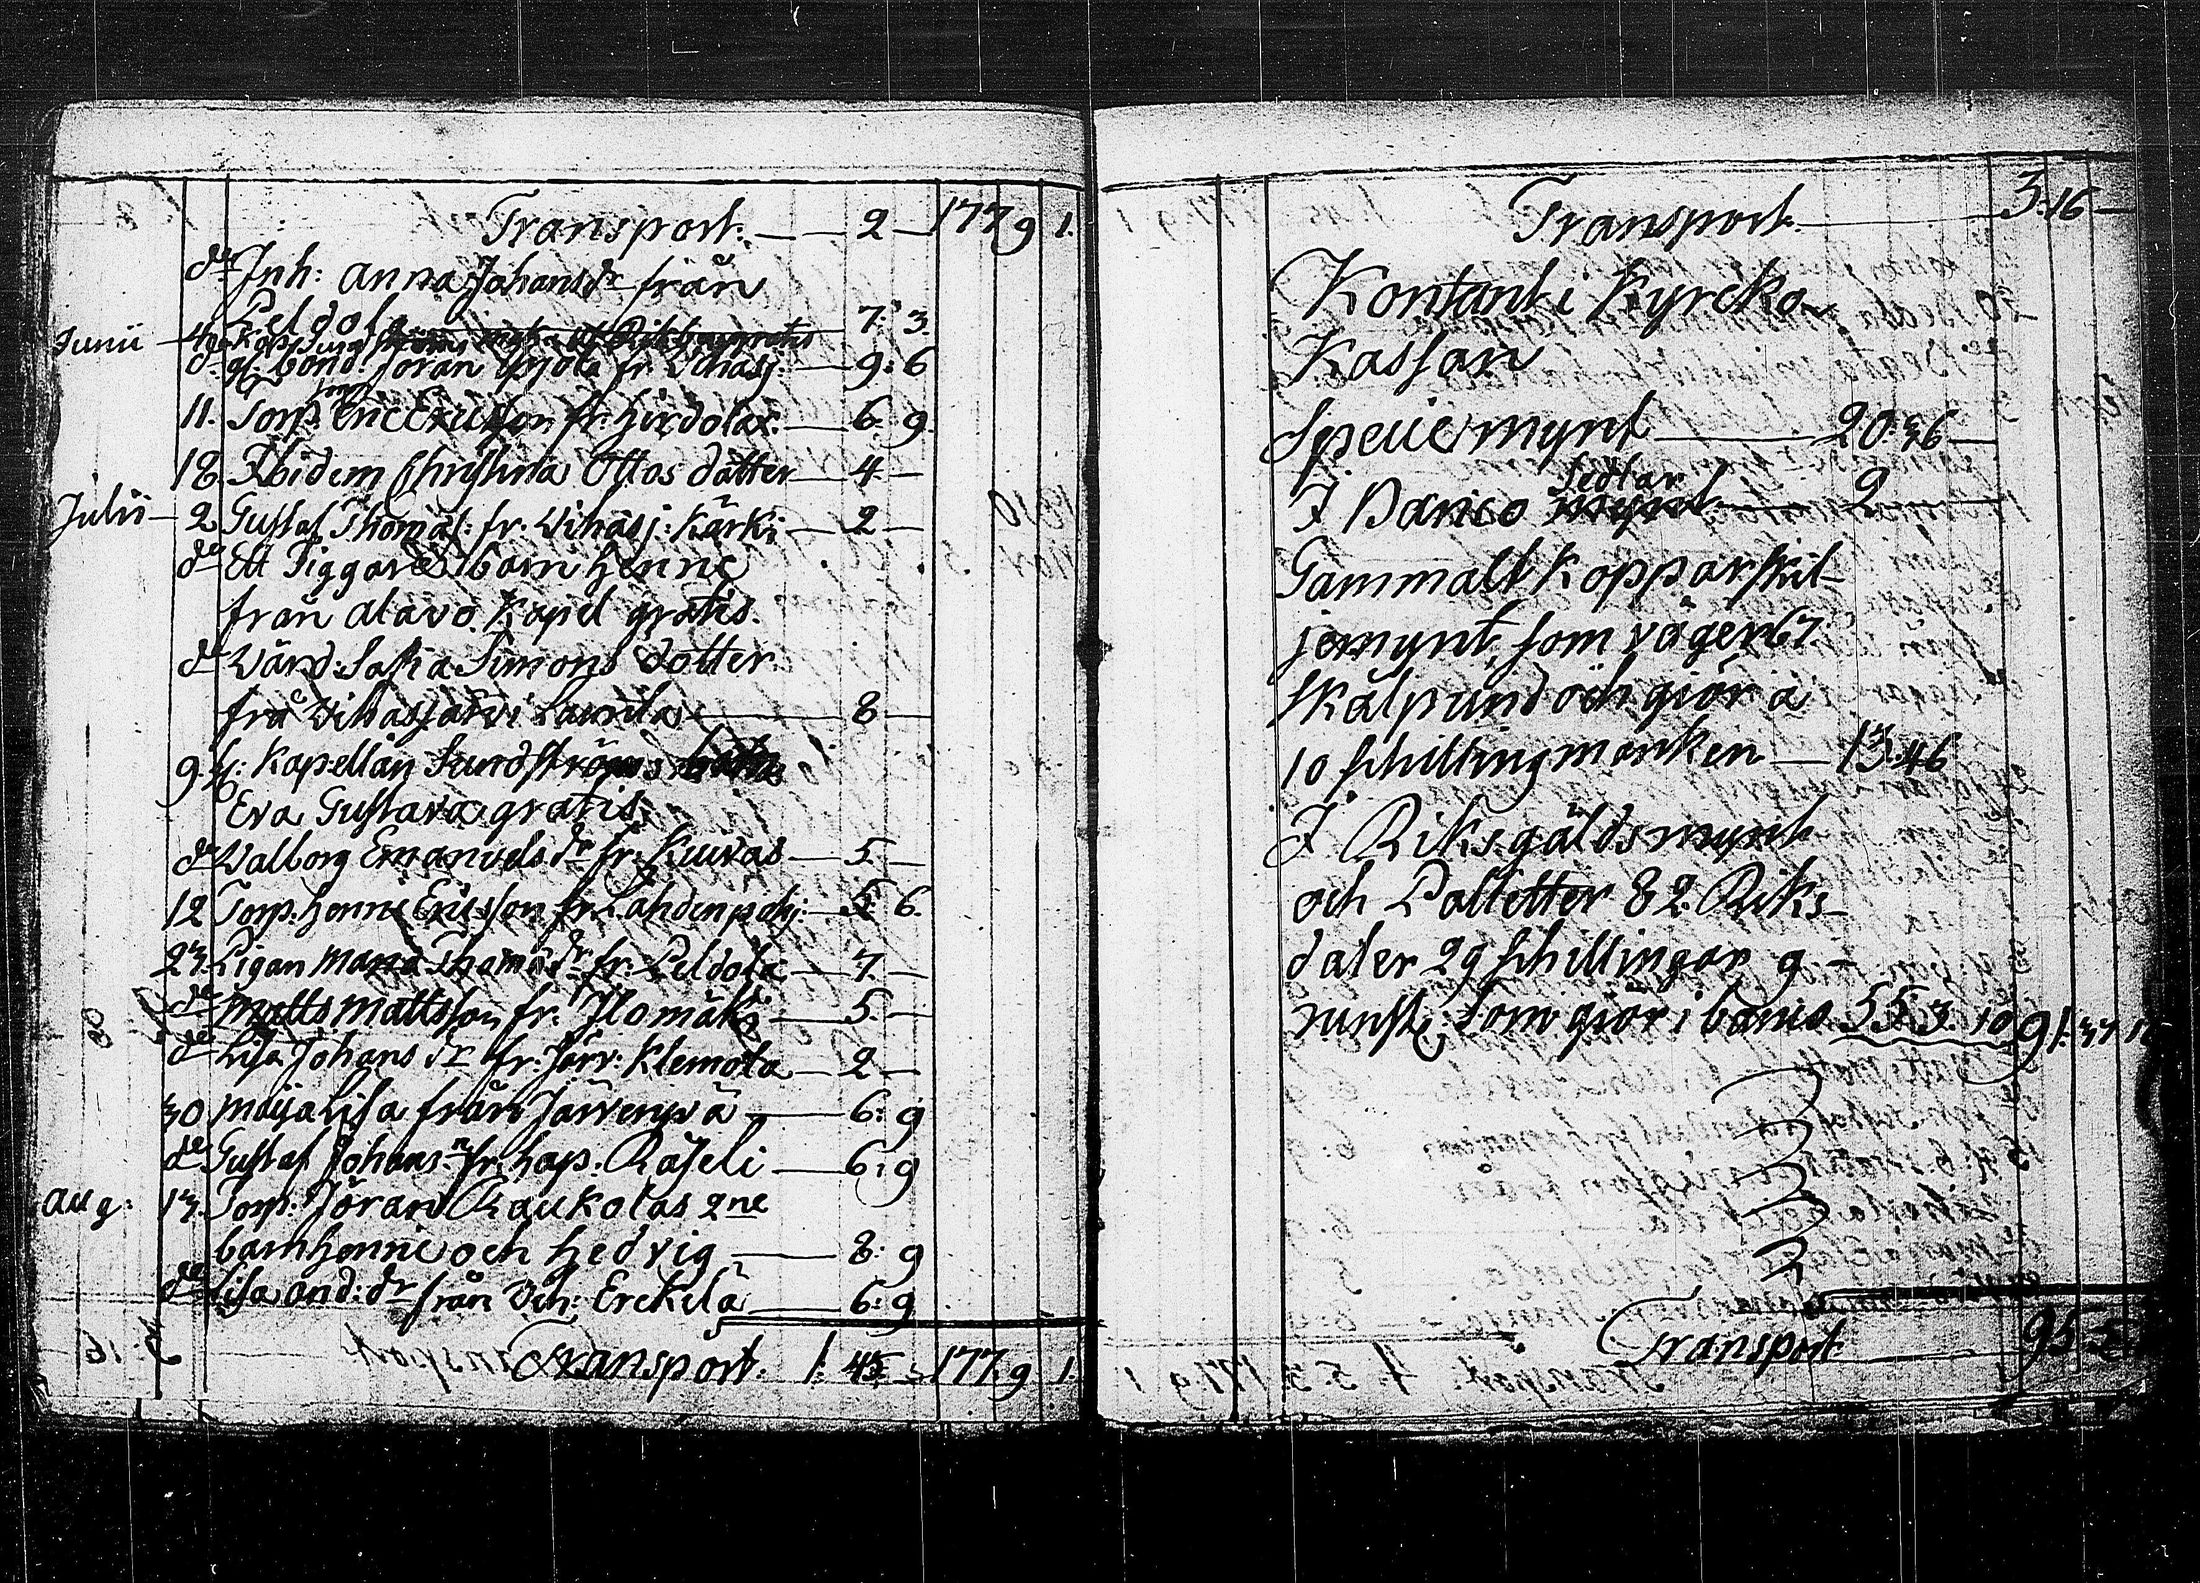 Transport. — 2 — 177 9 1.
do Inh: Anna Johansdr från
Peldola — 7. 3.
Junii — 4
d. gl. bond. Jöran Yrjola fr. Wihasj. — 9: 6
11. Torp. son Eric Ericsson fr. Hirdolax. — 6. 9.
18. Ibidem Christina Ottos dotter — 4 —
Julii — 2 Gustaf Thomas: fr. Wihasj: Kärki — 2 —
do Ett Tiggare barn henne
från Alavo Kapel gratis.
do Wärd: Sofia Simons dotter
frå Wihasjärvi Laurila — 8 —
9. H: Kapellan Sundströms
Eva Gustava gratis.
do Walborg Emanuels dr fr. Kuivas — 5 —
12 Torp. Henric Ericsson fr. Lahdenpohj: — 5. 6.
23. Pigan Maria Thomas dr fr. Peldola — 7. —
do Matts Mattsson fr. Ylomäki — 5. —
do Lisa Johans dr fr. Järv: Klemola — 2 —
30 Maija Lisa från Järvenpä — 6: 9
do Gustaf Johans.n fr. hap. Rajeli — 6: 9
Aug: 13. Torp: Jöran Raukolas 2ne
barn henric och Hedvig — 8: 9
do Lisa And: dr från Wih: Erckilä — 6: 9
Transport. 1. 45. — 177. 9 1.
Transport. — 3. 16 —
Kontant i Kyrcko
Kassan
Specie mynt — 20. 36 —
I Banco sedlar mynt — 2 —
Gammalt Kopparskil-
jemynt, som väger 67
skålpund och giör a
10 schilling marken — 13. 46
I Riksgälds mynt
och Polletter 82. Riks-
daler 29 schillingar 9 —
runst: som giör i banco 55. 3. 10 91. 37
Transport. 95